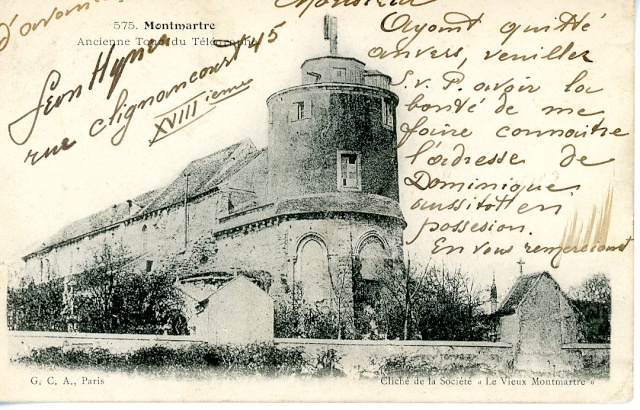 575. Montmartre
Ancienne Tour du Télégraphe
d'avance
Léon Hynes
rue Clignancourt 45
XVIII ième
Monsieur
Ayant quitté
anvers, veuillez
S.v.P. avoir la
bonté de me
faire connaître
l'adresse de
Dominique
aussitôt en
possesion.
En vous remerciant
G. C. A., Paris
Cliché de la Société « Le Vieux Montmartre »